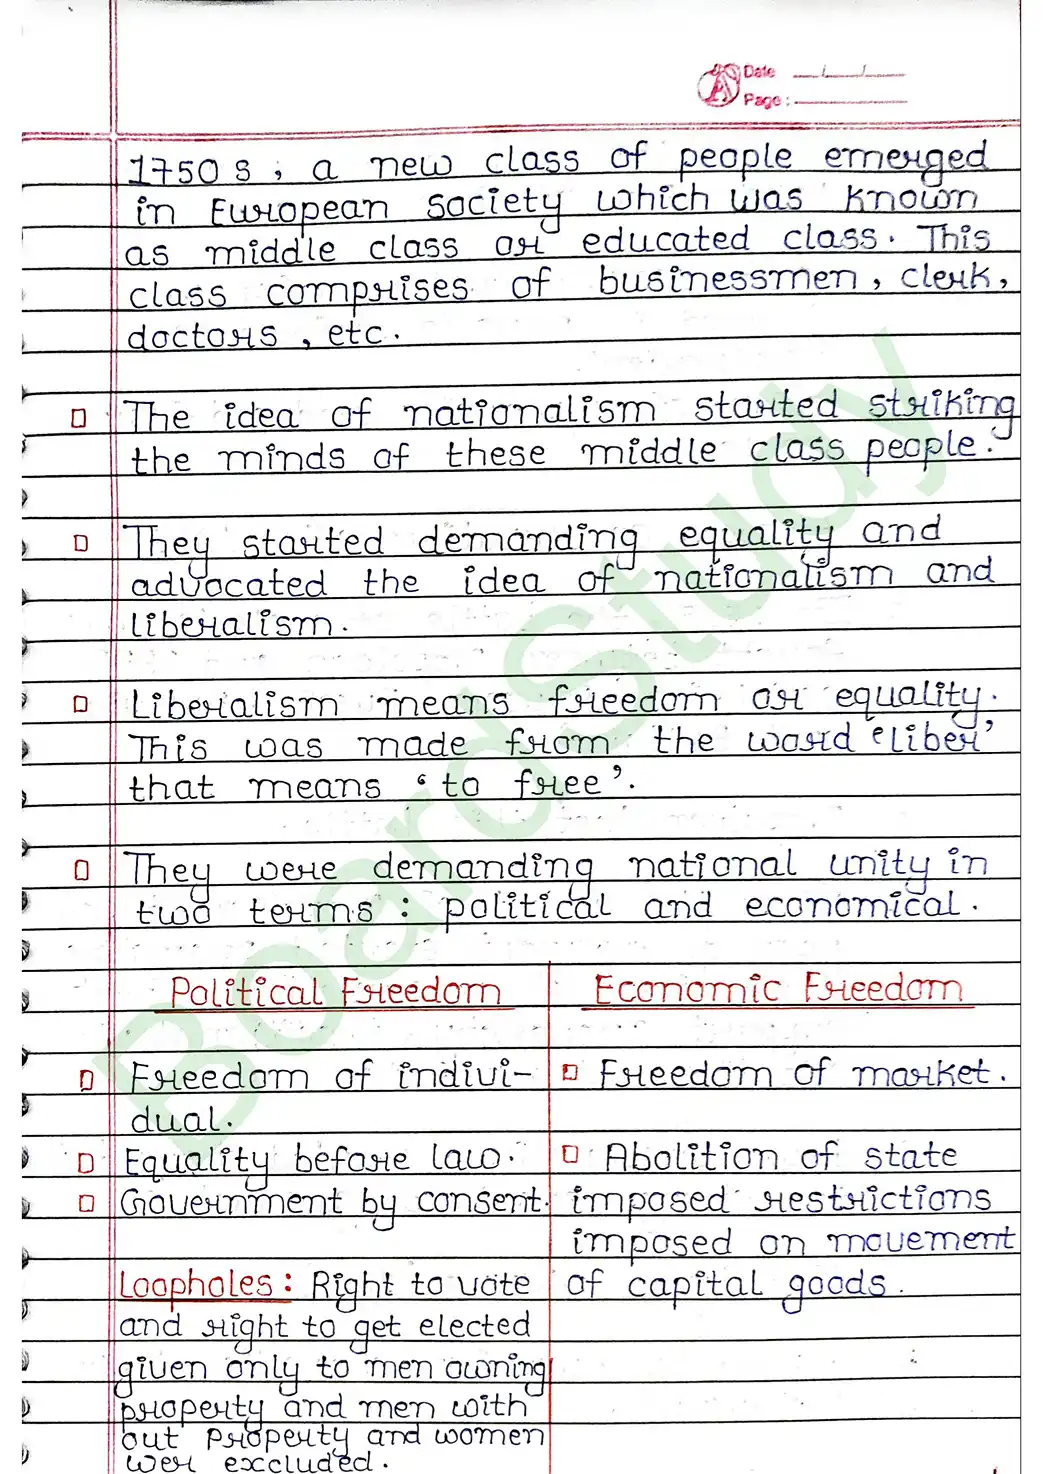 Date __/__/__
Page: ______
1750s, a new class of people emerged
in European society which was known
as middle class or educated class. This
class comprises of businessmen, clerk,
doctors, etc.
The idea of nationalism started striking
the minds of these middle class people.
They started demanding equality and
advocated the idea of nationalism and
liberalism.
Liberalism means freedom or equality.
This was made from the word 'liber'
that means 'to free'.
They were demanding national unity in
two terms: political and economical.
Political Freedom
Freedom of indivi-
dual.
Equality before law.
Government by consent.
Loopholes: Right to vote
and right to get elected
given only to men owning
property and men with
out property and women
wer excluded.
Economic Freedom
Freedom of market.
Abolition of state
imposed restrictions
imposed on movement
of capital goods.
BoardStudy